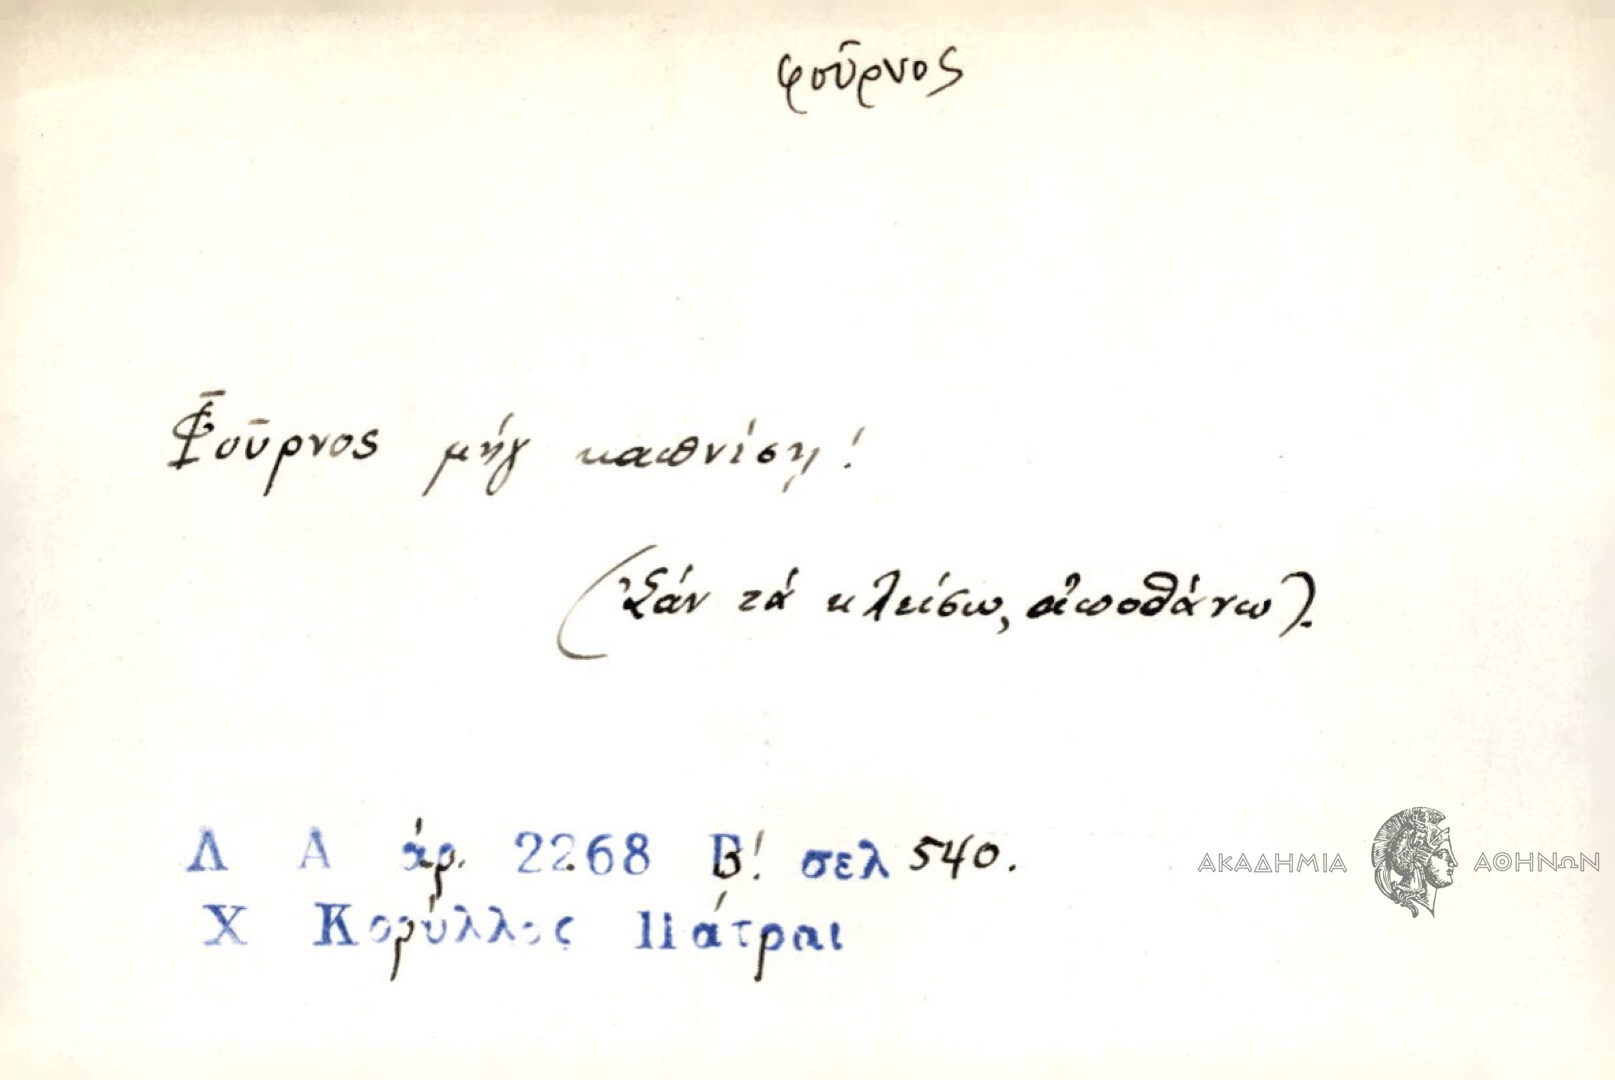 φοῦρνος
Φοῦρνος μήγ καπνίσῃ!
(Σάν τά κλείσω, ἀποθάνω).
Λ Α ἀρ. 2268 Β! σελ 540.
Χ Κορύλλος Πάτραι
ΑΚΑΔΗΜΙΑ ΑΘΗΝΩΝ